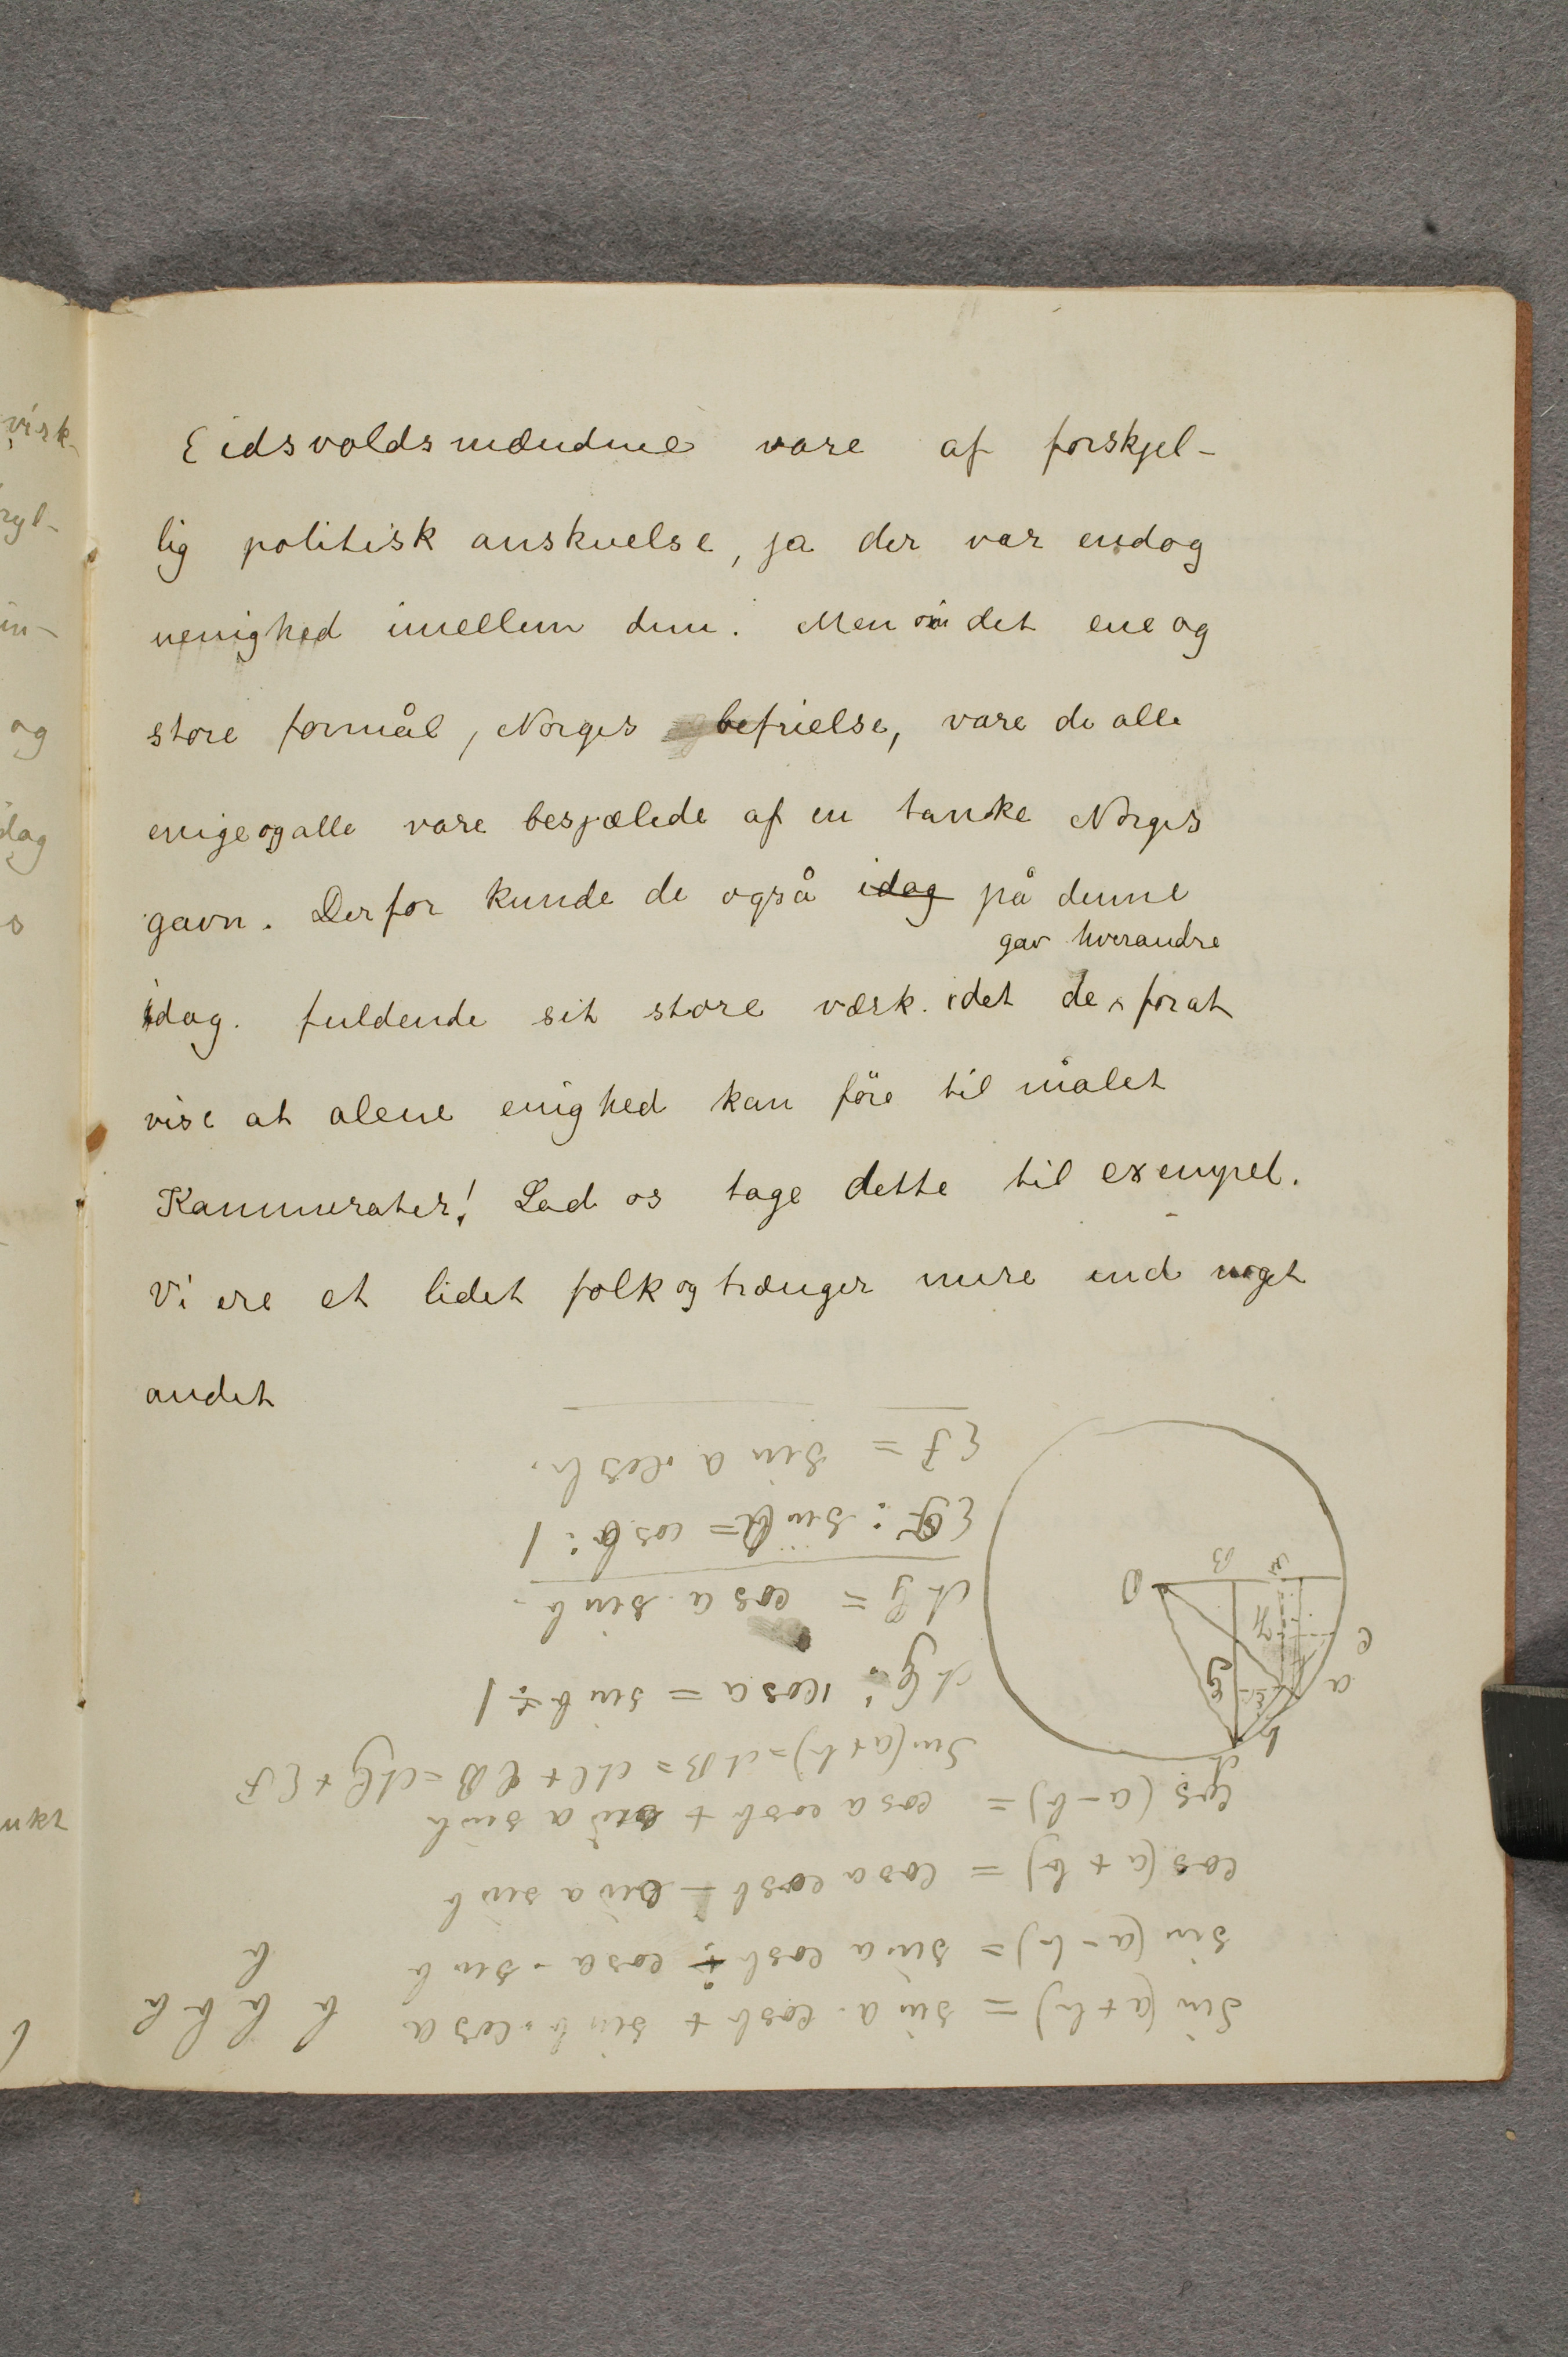 Eidsvoldsmændene vare af forskjel-
lig politisk anskuelse, ja der var endog
uenighed imellem dem. Men om det ene og
store formål, Norges befrielse, vare de alle
enige og alle vare besjælede af en tanke Norges
gavn. Derfor kunde de også idag på denne
gav hverandre
idag. fuldende sit store værk. idet de × forat
vise at alene enighed kan före til målet
Kammerater! Lad os tage dette til exempel.
Vi ere et lidet folk og trænger mere end noget
andet
sin (a+b) = sin a · cos b + sin b · cos a b b b b
sin (a-b) = sin a cos b ÷ cos a · sin b b
cos (a+b) = cos a cos b - sin a sin b
cos (a-b) = cos a cos b + sin a sin b
Sin (a+b) = AB = AC + CB = AG + EF
AG : cos a = sin b : 1
AG = cos a sin b
EF : sin a = cos b : 1
EF = sin a · cos b.
O B
G
A b
a
e
visk-
ryl-
in-
og
dag
s
ukt